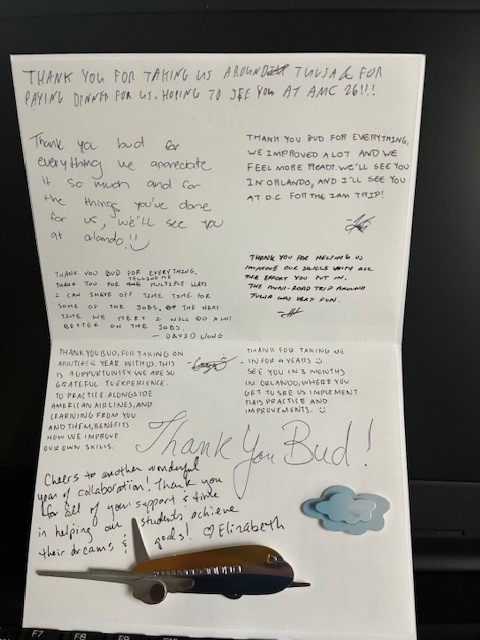 THANK YOU FOR TAKING US AROUND TULSA & FOR
PAYING DINNER FOR US. HOPING TO SEE YOU AT AMC 26!!!
Thank you bud for
everything we appreciate
it so much and for
the things you've done
for us, we'll see you
at alando!!
THANK YOU BUD FOR EVERYTHING,
WE IMPROVED A LOT AND WE
FEEL MORE READY. WE'LL SEE YOU
IN ORLANDO, AND I'LL SEE YOU
AT D.C. FOR THE IAM TRIP!
THANK YOU BUD FOR EVERYTHING.
THANK YOU FOR TELLING ME MULTIPLE WAYS
I CAN SHAVE OFF TIME TIME FOR
SOME OF THE JOBS. THE NEXT
TIME WE MEET I WILL DO A LOT
BETTER ON THE JOBS.
— DAVID WONG
THANK YOU FOR HELPING US
IMPROVE OUR SKILLS WITH ALL
THE EFFORT YOU PUT IN.
THE MINI-ROAD TRIP AROUND
TULSA WAS VERY FUN.
THANK YOU BUD, FOR TAKING ON
ANOTHER YEAR WITH US THIS
IS A OPPURTUNITY WE ARE SO
GRATEFUL TO EXPERIENCE.
TO PRACTICE ALONGSIDE
AMERICAN AIRLINES, AND
LEARNING FROM YOU
AND THEM, BENEFITS
HOW WE IMPROVE
OUR OWN SKILLS.
THANK FOR TAKING ME
IN FOR 4 YEARS
SEE YOU IN 3 MONTHS
IN ORLANDO, WHERE YOU
GET TO SEE US IMPLEMENT
THIS PRACTICE AND
IMPROVEMENTS.
Thank You Bud!
Cheers to another wonderful
year of collaboration! Thank you
for all of your support & time
in helping our students achieve
their dreams & goals! Elizabeth
F7 F8 F9